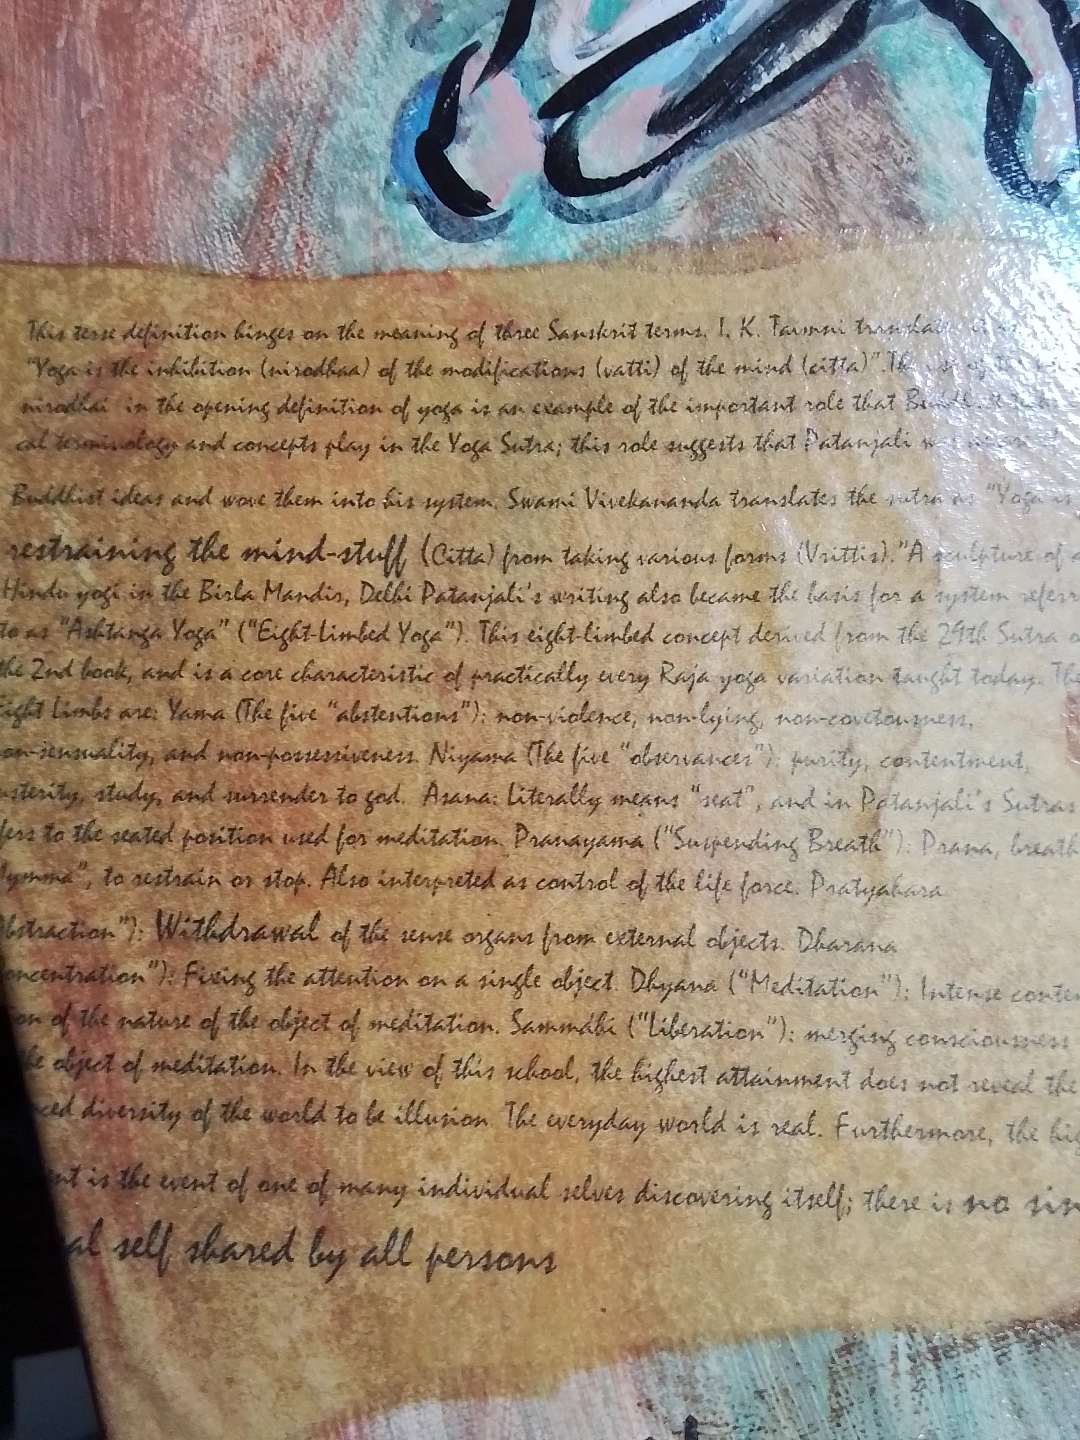 This terse definition hinges on the meaning of three Sanskrit terms. I. K. Taimni
"Yoga is the inhibition (nirodhaa) of the modifications (vatti) of the mind (citta)".The
nirodhai in the opening definition of yoga is an example of the important role that
cal terminology and concepts play in the Yoga Sutra; this role suggests that Patanjali
Buddhist ideas and wove them into his system. Swami Vivekananda translates the sutra as "Yoga is
restraining the mind-stuff (Citta) from taking various forms (Vrittis)."A sculpture of a
Hindu yogi in the Birla Mandir, Delhi Patanjali's writing also became the basis for a system referr
to as "Ashtanga Yoga" ("Eight-Limbed Yoga"). This eight-limbed concept derived from the 29th Sutra o
the 2nd book, and is a core characteristic of practically every Raja yoga variation taught today. The
Eight Limbs are: Yama (The five "abstentions"): non-violence, non-lying, non-covetousness,
on-sensuality, and non-possessiveness. Niyama (The five "observances"): purity, contentment,
usterity, study, and surrender to god. Asana: Literally means "seat", and in Patanjali's Sutras
fers to the seated position used for meditation. Pranayama ("Suspending Breath"): Prana, breath
ymma", to restrain or stop. Also interpreted as control of the life force. Pratyahara
bstraction"): Withdrawal of the sense organs from external objects. Dharana
oncentration"): Fixing the attention on a single object. Dhyana ("Meditation"): Intense contem
on of the nature of the object of meditation. Sammáhi ("Liberation"): merging consciousness
he object of meditation. In the view of this school, the highest attainment does not reveal the
ced diversity of the world to be illusion. The everyday world is real. Furthermore, the hig
nt is the event of one of many individual selves discovering itself; there is no sin
al self shared by all persons